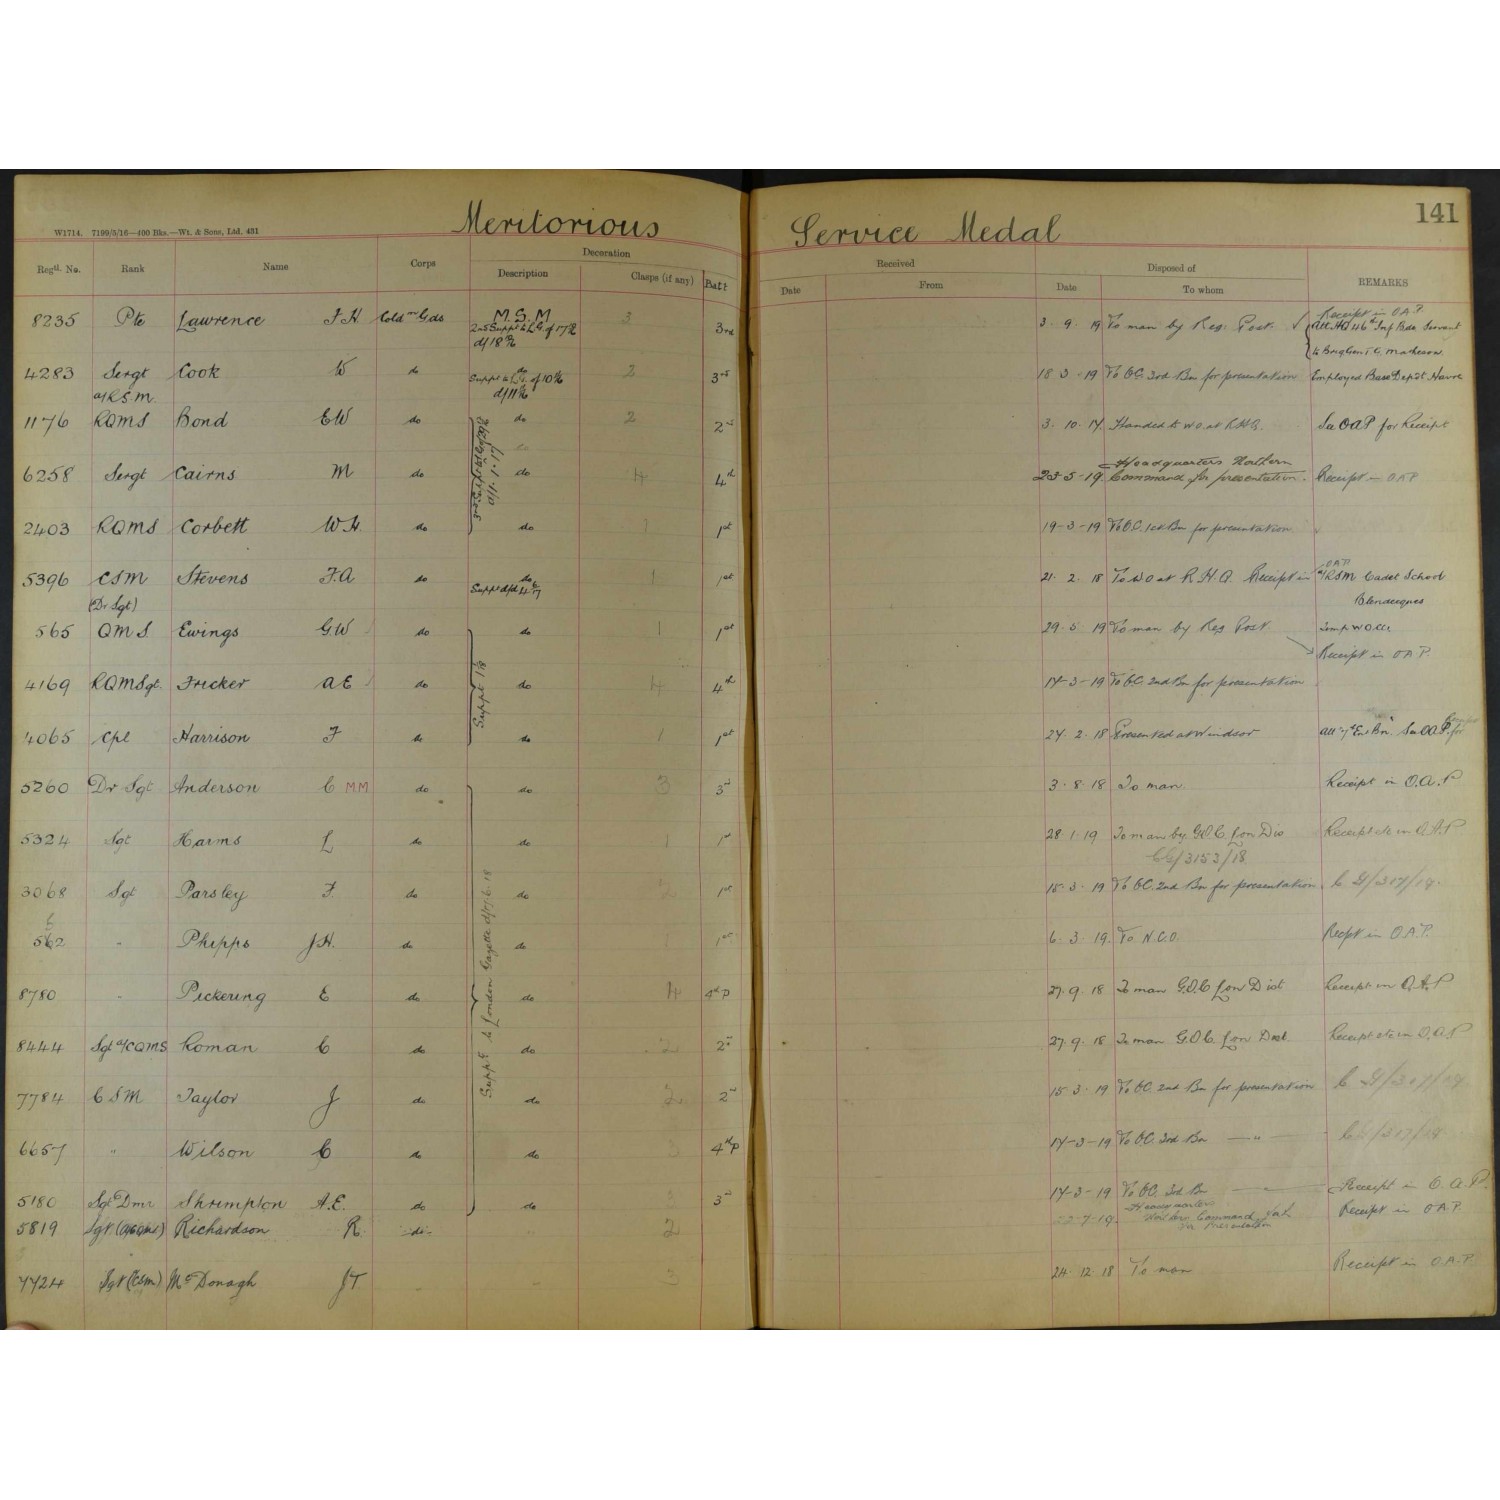 Meritorious Service Medal
141
W1714. 7199/5/16—400 Bks.—Wt. & Sons, Ltd. 431
Regtl. No. Rank Name Corps Decoration Received Disposed of REMARKS
Description Clasps (if any) Batt Date From Date To whom
8235 Pte Lawrence F.H. Cold m Gds M.S.M 3 3rd 3. 9. 19 To man by Reg. Post. Receipt in O.A.P.
2nd Suppt to L.G. of 17/2 att. HQ 46th Inf Bde Servant
d/ 18 to Brig Gen T.G. Matheson
4283 Sergt Cook W do do 2 3rd 18 3 - 19 To O.C. 3rd Bn for presentation Employed Base Depôt Havre
a/R.S.M. Suppt to L.G. of 10 d/ 11
1176 RQMS Bond E W do do 2 2nd 3. 10. 17. Handed to WO at R.H.Q. See OAP for Receipt
6258 Sergt Cairns M do do 4 4th 23-5-19. Headquarters Northern Receipt in OAP
Command for presentation.
2403 RQMS Corbett W.H. do do 1 1st 19-3-19 To O.C. 1st Bn for presentation
d/1.1.17
5396 CSM Stevens F.A do do 1 1st 21. 2. 18 To WO at R.H.Q. Receipt in OAP
(Dr Sgt) a/RSM Cadet School
Blendecques
565 QMS Ewings G.W do do 1 1st 29. 5. 19 To man by Reg Post.
Receipt in OAP.
4169 RQMSgt. Fricker A E do do 4 4th 17-3-19 To O.C. 2nd Bn for presentation
4065 Cpl Harrison F do do 1 1st 27. 2. 18 Presented at Windsor See OAP. for
5260 Dr Sgt Anderson C MM do do 3 3rd 3. 8. 18 To man. Receipt in O.A.P
5324 Sgt Harms L do do 1 1st 28.1.19 To man by G.O.C. Lon Dis Receipt etc in O.A.P
3153/18
3068 Sgt Parsley F. do do 2 1st 15. 3. 19 To O.C. 2nd Bn for presentation. 317/19.
562 " Phipps J.H. do do 1st 6. 3. 19. To N.C.O. Recpt in O.A.P.
Suppt to London Gazette d/17.6.18
8780 " Pickering E do do 4 4th P 27. 9. 18 To man G.O.C Lon Dist Receipt in O.A.P
8444 Sgt a/CQMS Roman C do do 2 2nd 27. 9. 18 To man G.O.C. Lon Dist. Receipt etc in O.A.P
7784 C S M Taylor J do do 2 2nd 15 3. 19 To O.C. 2nd Bn for presentation 317/19
6657 " Wilson C do do 3 4th P 17-3-19 To O.C. 3rd Bn — " — 317/19
5180 Sgt Dmr Shrimpton A.E. do do 3 3rd 17-3-19 To O.C. 3rd Bn Receipt in O.A.P.
5819 Sgt. Richardson R. do 2 7-19. Headquarters Command for Presentation Receipt in OAP
7724 Sgt (CSM) McDonagh J T 3 24. 12. 18 To man Receipt in O.A.P.